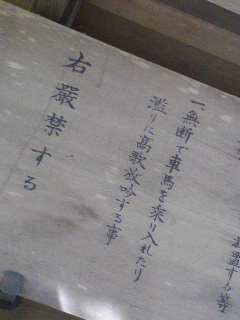 置する等
一、無断で車馬を乗り入れたり
濫りに高歌放吟する事
右嚴禁する